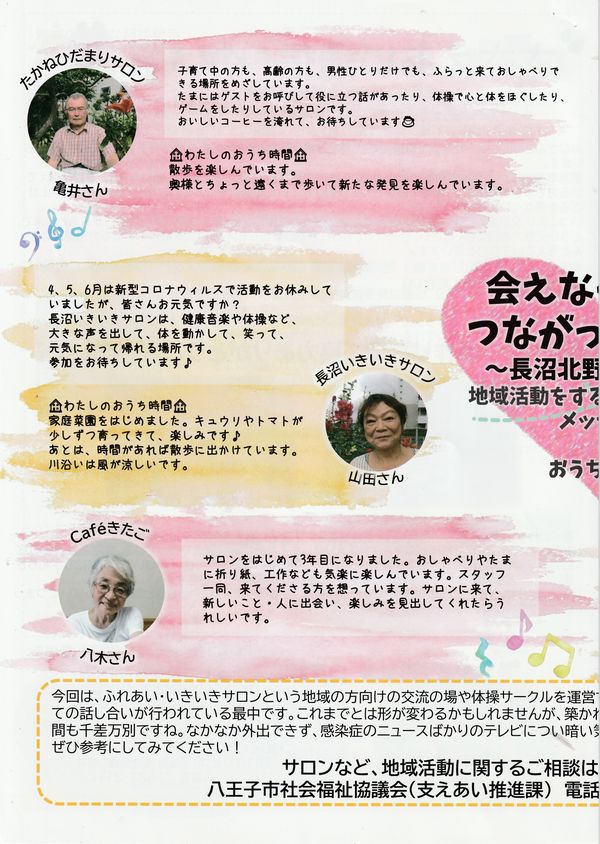 たかねひだまりサロン
子育て中の方も、高齢の方も、男性ひとりだけでも、ふらっと来ておしゃべりで
きる場所をめざしています。
たまにはゲストをお呼びして役に立つ話があったり、体操で心と体をほぐしたり、
ゲームをしたりしているサロンです。
おいしいコーヒーを淹れて、お待ちしています☕
亀井さん
🏠わたしのおうち時間🏠
散歩を楽しんでいます。
奥様とちょっと遠くまで歩いて新たな発見を楽しんでいます。
4、5、6月は新型コロナウィルスで活動をお休みして
いましたが、皆さんお元気ですか?
長沼いきいきサロンは、健康音楽や体操など、
大きな声を出して、体を動かして、笑って、
元気になって帰れる場所です。
参加をお待ちしています♪
長沼いきいきサロン
🏠わたしのおうち時間🏠
家庭菜園をはじめました。キュウリやトマトが
少しずつ育ってきて、楽しみです♪
あとは、時間があれば散歩に出かけています。
川沿いは風が涼しいです。
山田さん
会えな
つながっ
~長沼北野
地域活動をする
メッ
おうち
Caféきたご
サロンをはじめて3年目になりました。おしゃべりやたま
に折り紙、工作なども気楽に楽しんでいます。スタッフ
一同、来てくださる方を想っています。サロンに来て、
新しいこと・人に出会い、楽しみを見出してくれたらう
れしいです。
八木さん
今回は、ふれあい・いきいきサロンという地域の方向けの交流の場や体操サークルを運営
ての話し合いが行われている最中です。これまでとは形が変わるかもしれませんが、築か
間も千差万別ですね。なかなか外出できず、感染症のニュースばかりのテレビについ暗い
ぜひ参考にしてみてください!
サロンなど、地域活動に関するご相談は
八王子市社会福祉協議会(支えあい推進課) 電話